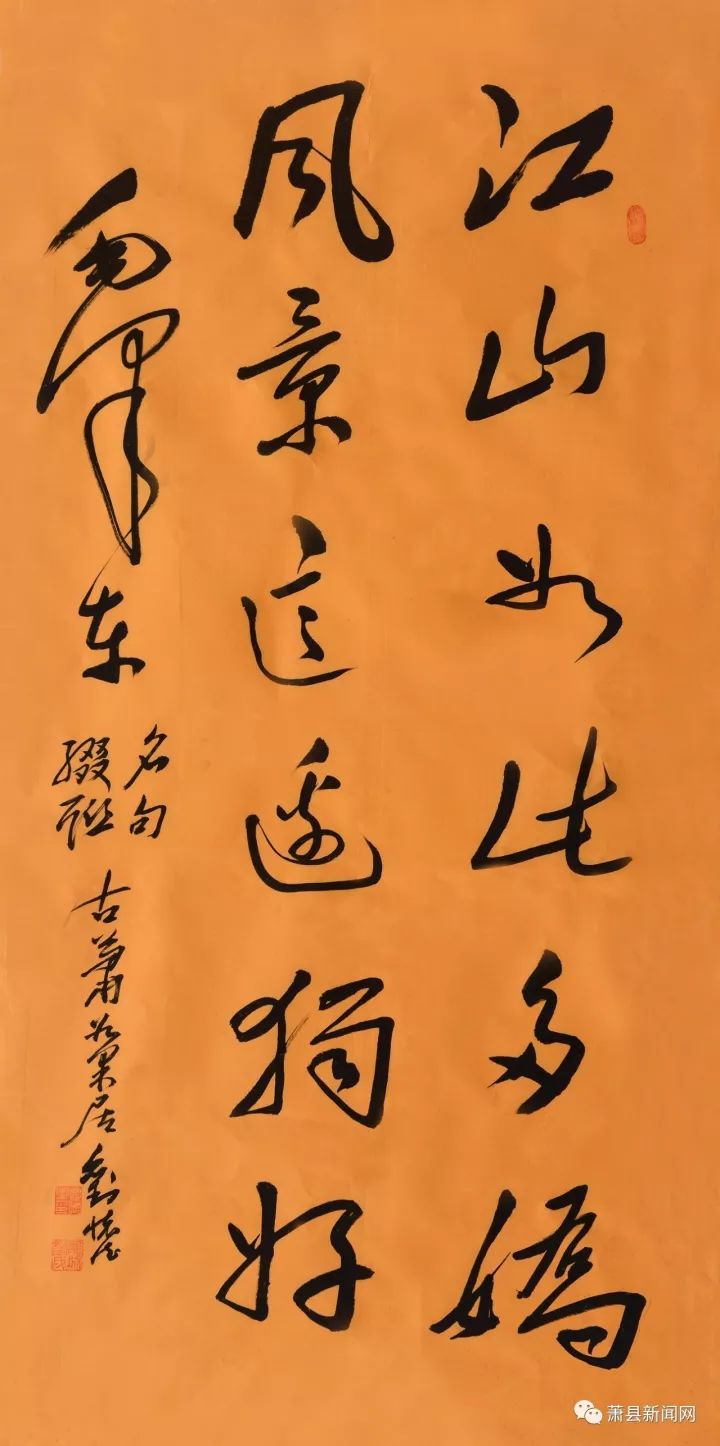 江山如此多娇
风景这边独好
毛泽东
名句
缀联
古萧
居刘
萧县新闻网